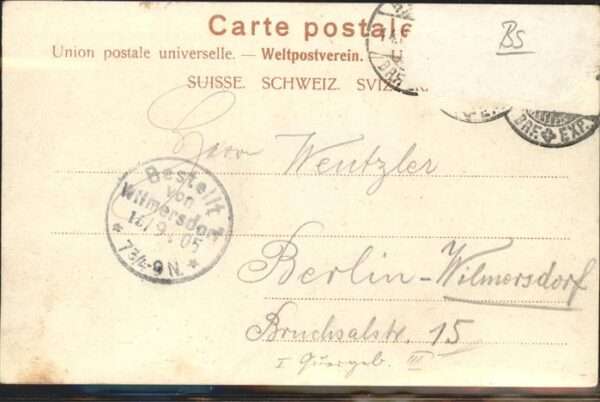 Carte postale
BS
Union postale universelle. — Weltpostverein.
SUISSE. SCHWEIZ.
BRE EXP.
Herrn Wentzler
Bestellt
von
Wilmersdorf
14/9. 05
7¾-9 N.
Berlin-Wilmersdorf
Bruchsalstr. 15
I Quergeb. III